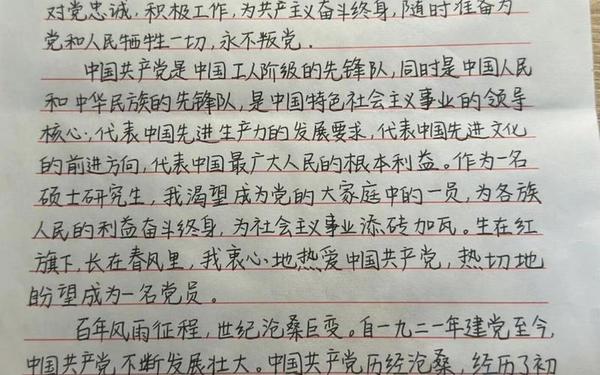 对党忠诚,积极工作,为共产主义奋斗终身,随时准备为
党和人民牺牲一切,永不叛党.
中国共产党是中国工人阶级的先锋队,同时是中国人民
和中华民族的先锋队,是中国特色社会主义事业的领导
核心,代表中国先进生产力的发展要求,代表中国先进文化
的前进方向,代表中国最广大人民的根本利益。作为一名
硕士研究生,我渴望成为党的大家庭中的一员,为各族
人民的利益奋斗终身,为社会主义事业添砖加瓦。生在红
旗下,长在春风里,我衷心地热爱中国共产党,热切地
盼望成为一名党员。
百年风雨征程,世纪沧桑巨变。自一九二一年建党至今,
中国共产党不断发展壮大。中国共产党历经沧桑,经历了初